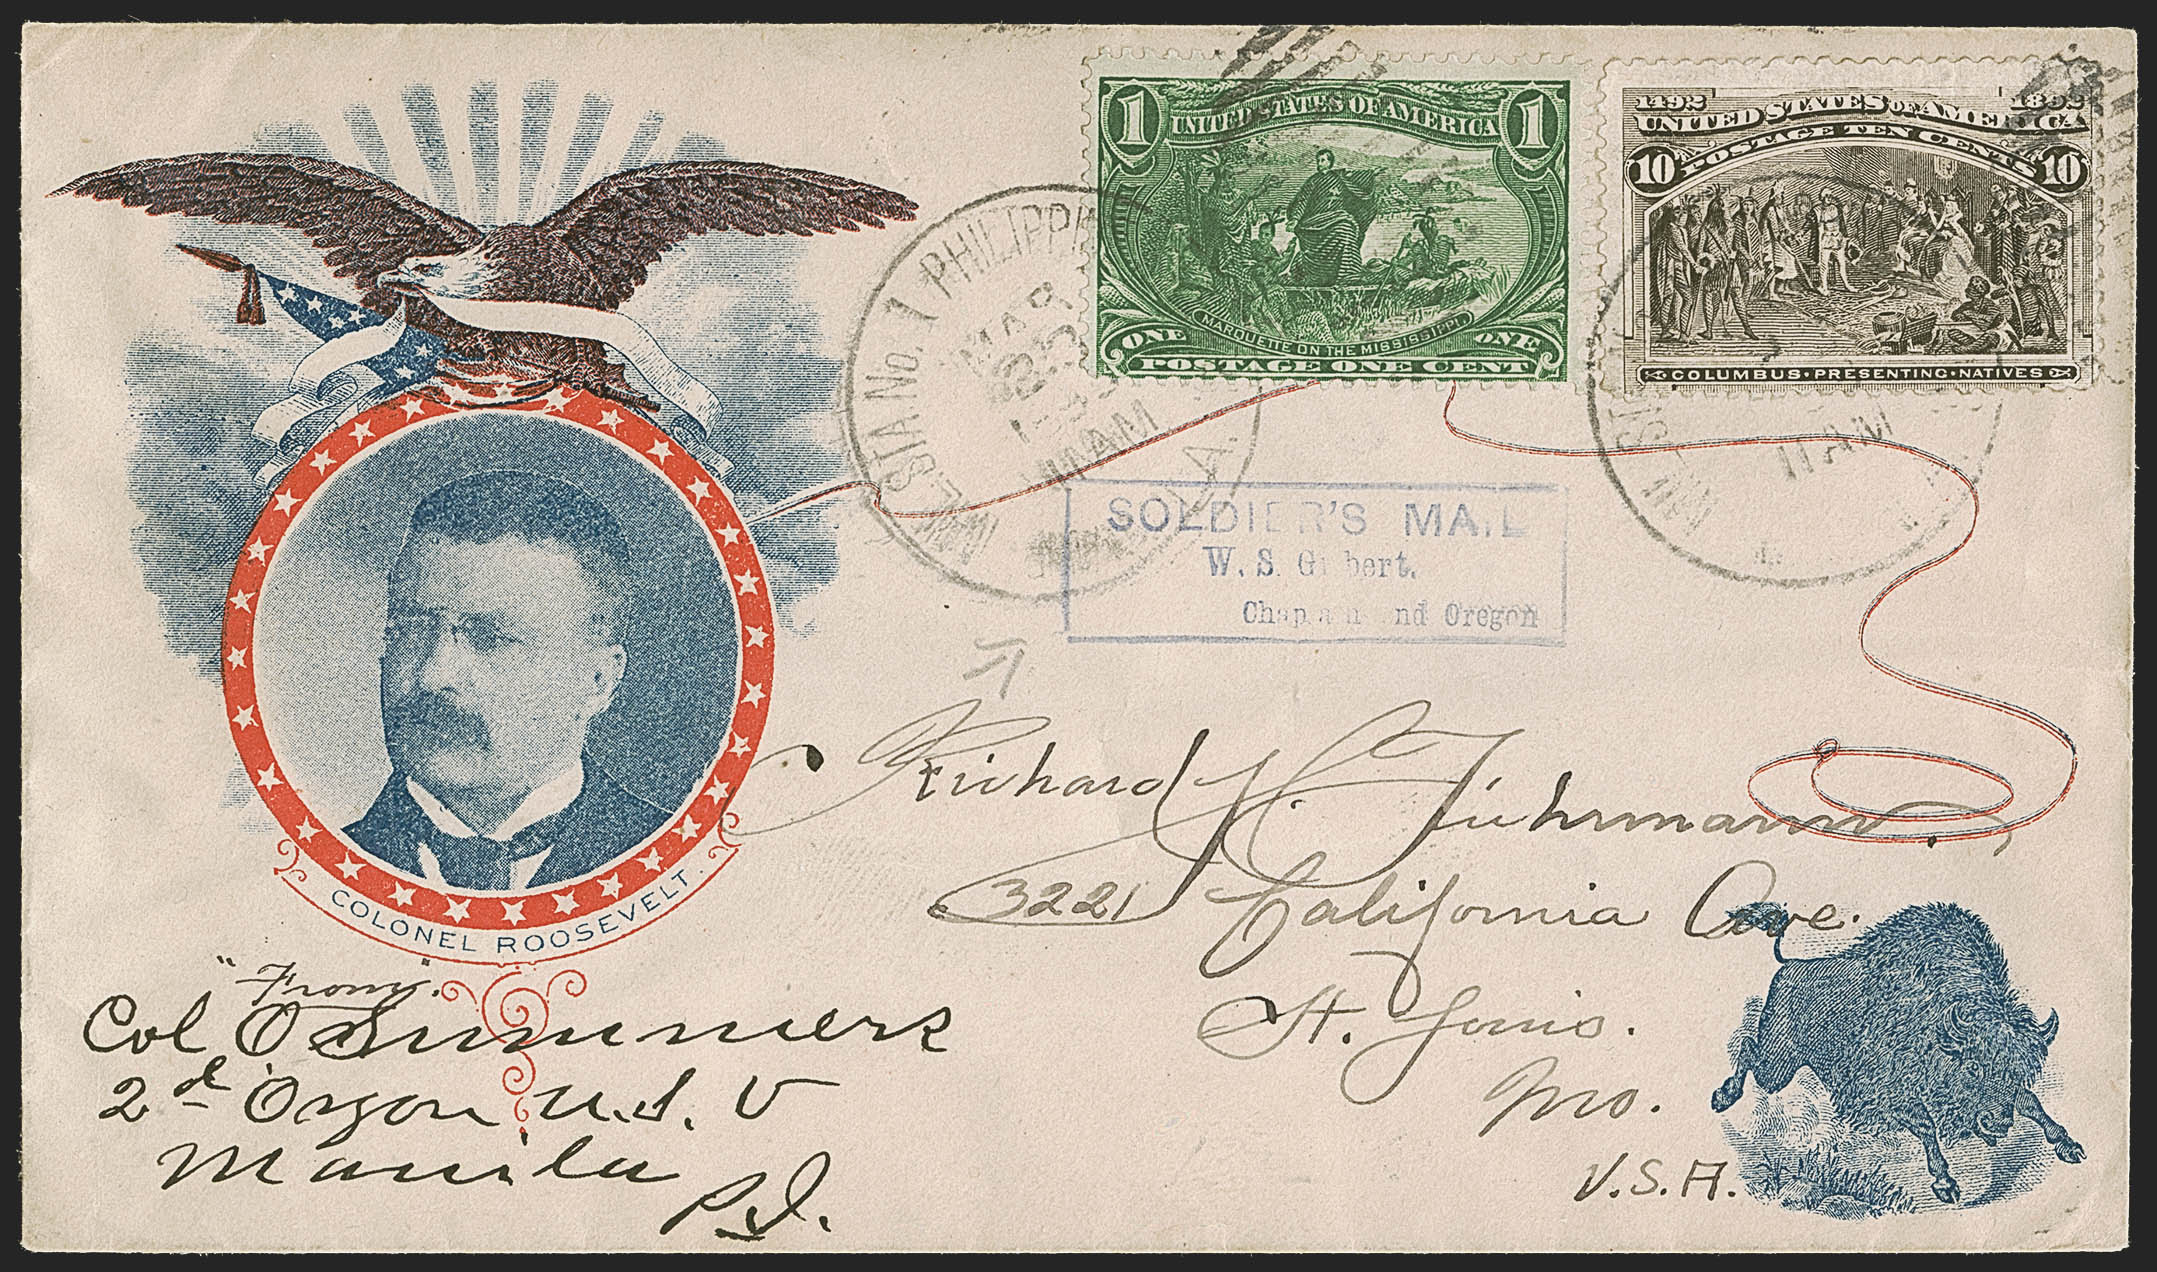 1 UNITED STATES OF AMERICA 1
MARQUETTE ON THE MISSISSIPPI
ONE ONE
POSTAGE ONE CENT
1492 1892
UNITED STATES OF AMERICA
POSTAGE TEN CENTS
10 10
COLUMBUS PRESENTING NATIVES
MIL. STA. No. 1 PHILIPPINE
MAR
11 AM
MIL. STA
11 AM
SOLDIER'S MAIL
W. S. Gilbert,
Chaplain 2nd Oregon
COLONEL ROOSEVELT.
Richard H. Fuhrmann,
3221 California Ave.
St. Louis.
Mo.
U.S.A.
"From"
Col O Summers
2d Oregon U.S. V
Manila
P.I.